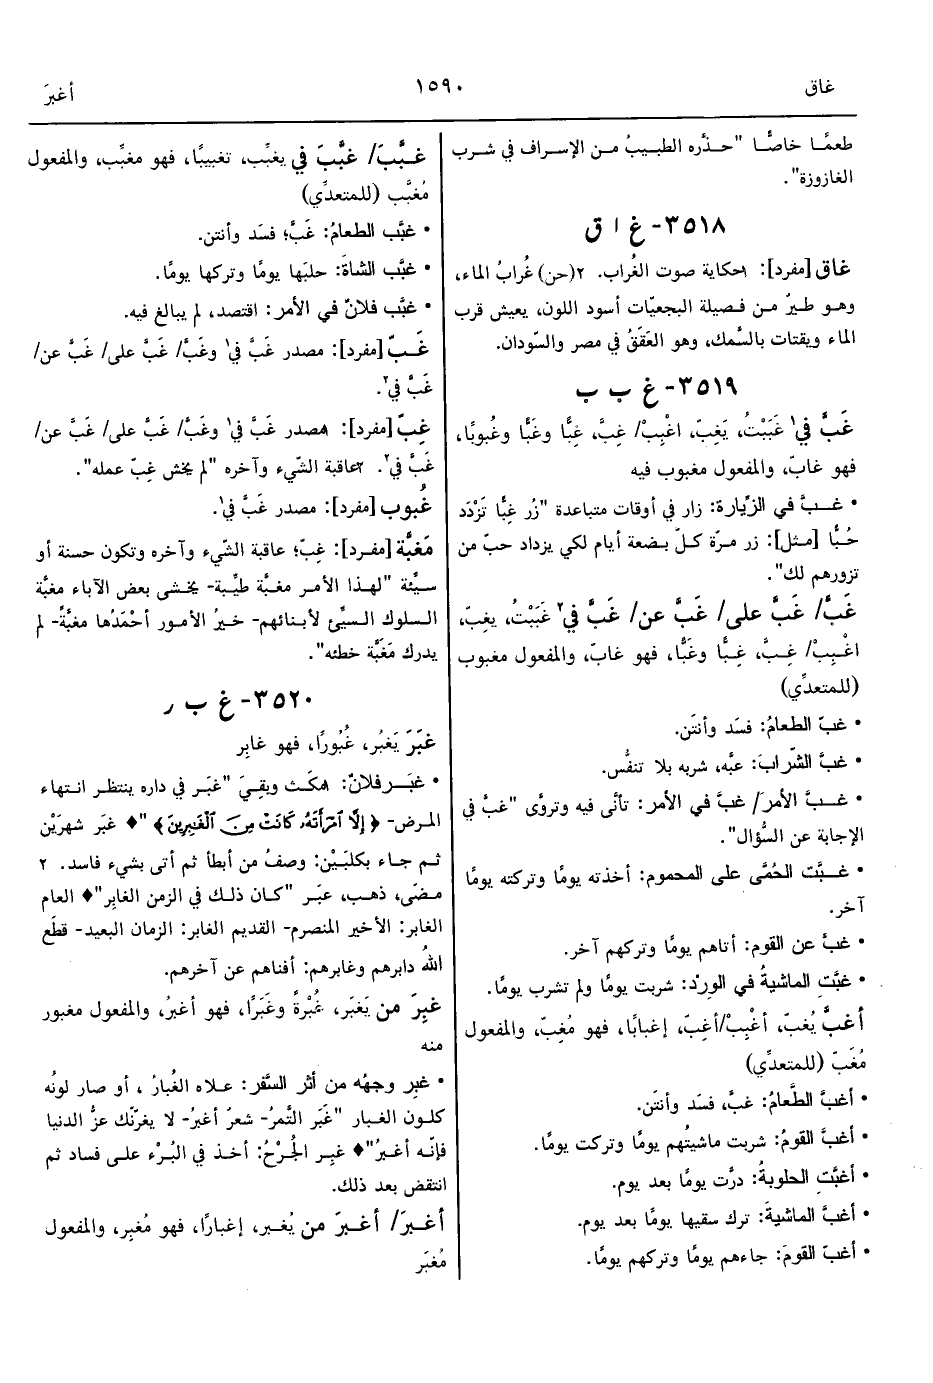 غاق
١٥٩٠
أغبرَ
طعمًا خاصًّا "حذَّره الطبيبُ من الإسراف في شرب
الغازوزة".
٣٥١٨- غ ا ق
غاق [مفرد]: ١حكاية صوت الغُراب. ٢(حن) غُرابُ الماء،
وهو طيرٌ من فصيلة البجعيّات أسود اللون، يعيش قرب
الماء ويقتات بالسَّمك، وهو العَقَقُ في مصر والسّودان.
٣٥١٩- غ ب ب
غَبَّ في١ غَبَبْتُ، يَغِبّ، اغْبِبْ/ غِبَّ، غِبًّا وغَبًّا وغُبوبًا،
فهو غابّ، والمفعول مغبوب فيه
• غبَّ في الزِّيارة: زار في أوقات متباعدة "زُر غِبًّا تَزْدَد
حُبًّا [مثل]: زر مرّة كلّ بضعة أيام لكي يزداد حبّ من
تزورهم لك".
غَبَّ/ غَبَّ على/ غَبَّ عن/ غَبَّ في٢ غَبَبْتُ، يغِبّ،
اغْبِبْ/ غِبَّ، غِبًّا وغَبًّا، فهو غابّ، والمفعول مغبوب
(للمتعدِّي)
• غبّ الطعامُ: فسَد وأنتَن.
• غبَّ الشّرابَ: عبَّه، شربه بلا تنفُّس.
• غبَّ الأمرَ/ غبَّ في الأمر: تأنَّى فيه وتروَّى "غبَّ في
الإجابة عن السُّؤال".
• غبَّت الحُمَّى على المحموم: أخذته يومًا وتركته يومًا
آخر.
• غبَّ عن القوم: أتاهم يومًا وتركهم آخر.
• غبَّتِ الماشيةُ في الوِرْد: شربت يومًا ولم تشرب يومًا.
أغبَّ يُغبّ، أَغْبِبْ/أغِبّ، إغبابًا، فهو مُغِبّ، والمفعول
مُغَبّ (للمتعدِّي)
• أغبَّ الطَّعامُ: غبَّ، فسَد وأنتَن.
• أغبَّ القومُ: شربت ماشيتُهم يومًا وتركت يومًا.
• أغبَّتِ الحلوبةُ: درَّت يومًا بعد يوم.
• أغبَّ الماشيةَ: ترك سقيها يومًا بعد يوم.
• أغبّ القومَ: جاءهم يومًا وتركهم يومًا.
غبَّبَ/ غبَّبَ في يغبِّب، تغبيبًا، فهو مغبِّب، والمفعول
مُغبَّب (للمتعدِّي)
• غبَّب الطعامُ: غَبَّ؛ فسَد وأنتن.
• غبَّب الشاةَ: حلبَها يومًا وتركها يومًا.
• غبَّب فلانٌ في الأمر: اقتصد، لم يبالغ فيه.
غَبّ [مفرد]: مصدر غَبَّ في١ وغَبَّ/ غَبَّ على/ غَبَّ عن/
غَبَّ في٢.
غِبّ [مفرد]: ١مصدر غَبَّ في١ وغَبَّ/ غَبَّ على/ غَبَّ عن/
غَبَّ في٢. ٢عاقبة الشّيء وآخره "لم يخش غِبّ عمله".
غُبوب [مفرد]: مصدر غَبَّ في١.
مَغَبَّة [مفرد]: غِبّ؛ عاقبة الشّيء وآخره وتكون حسنة أو
سيِّئة "لهذا الأمر مغبَّة طيِّبة- يخشى بعض الآباء مغبَّة
السلوك السيِّئ لأبنائهم- خيرُ الأمور أحْمَدُها مغبَّةً- لم
يدرك مَغَبَّة خطئه".
٣٥٢٠- غ ب ر
غبَرَ يَغبُر، غُبُورًا، فهو غابِر
• غبَر فلانٌ: ١مكَث وبقِيَ "غبَر في داره ينتظر انتهاء
المرض- ﴿إِلَّا ٱمْرَأَتَهُۥ كَانَتْ مِنَ ٱلْغَٰبِرِينَ﴾ "♦ غبَر شهرَيْن
ثم جاء بكلبَيْن: وصفُ من أبطأ ثم أتى بشيء فاسد. ٢
مضَى، ذهب، عبَر "كان ذلك في الزمن الغابِر"♦ العام
الغابر: الأخير المنصرم- القديم الغابر: الزمان البعيد- قطَع
اللهُ دابرهم وغابرهم: أفناهم عن آخرهم.
غبِرَ من يَغبَر، غُبْرةً وغَبَرًا، فهو أغبرُ، والمفعول مغبور
منه
• غبِر وجهُه من أثر السَّفر: علاه الغُبارُ، أو صار لونُه
كلون الغبار "غَبِر التَّمرُ- شعرٌ أغبرُ- لا يغرّنّك عزُّ الدنيا
فإنّه أغبرُ"♦ غبِر الجُرْحُ: أخذ في البُرْء على فساد ثم
انتقض بعد ذلك.
أغبرَ/ أغبرَ من يُغبر، إغبارًا، فهو مُغبِر، والمفعول
مُغبَر